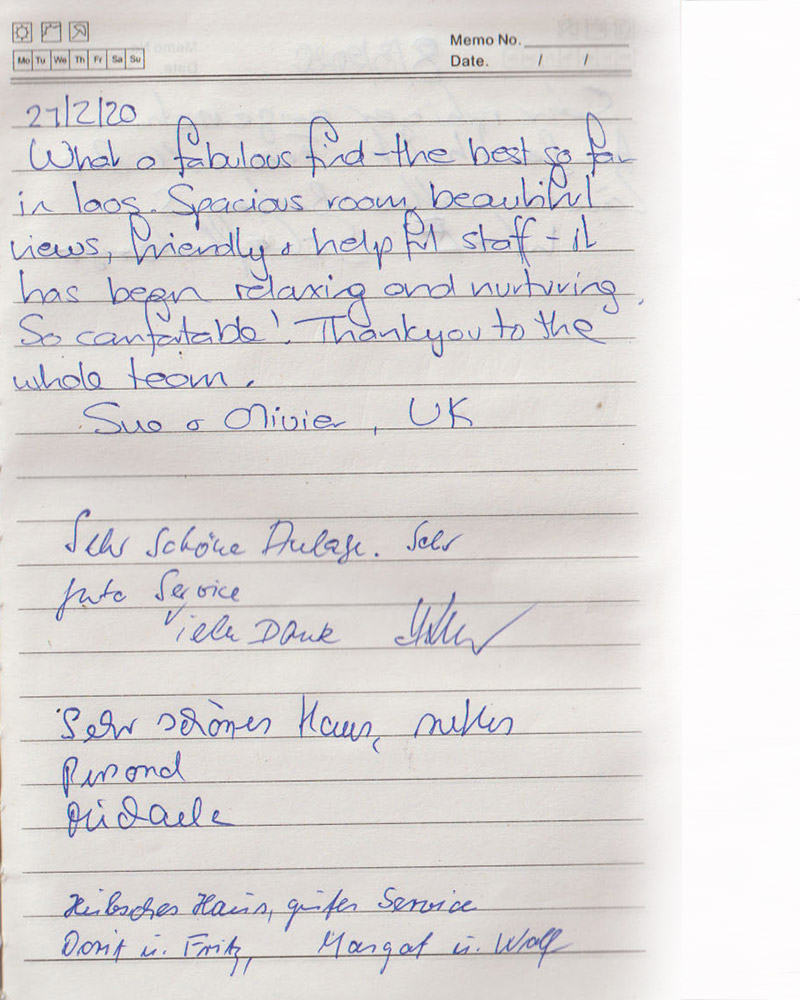 Mo Tu We Th Fr Sa Su
Memo No.
Date. / /
27/2/20
What a fabulous find - the best so far
in laos. Spacious room, beautiful
views, friendly & helpful staff - it
has been relaxing and nurturing.
So comfortable! Thankyou to the
whole team.
Sue & Olivier, UK
Sehr schöne Anlage. Sehr
gute Service
Viele Dank
Sehr schönes Haus, nettes
Personal
Hübsches Haus, guter Service
Dorit u. Fritz, Margot u. Wolf